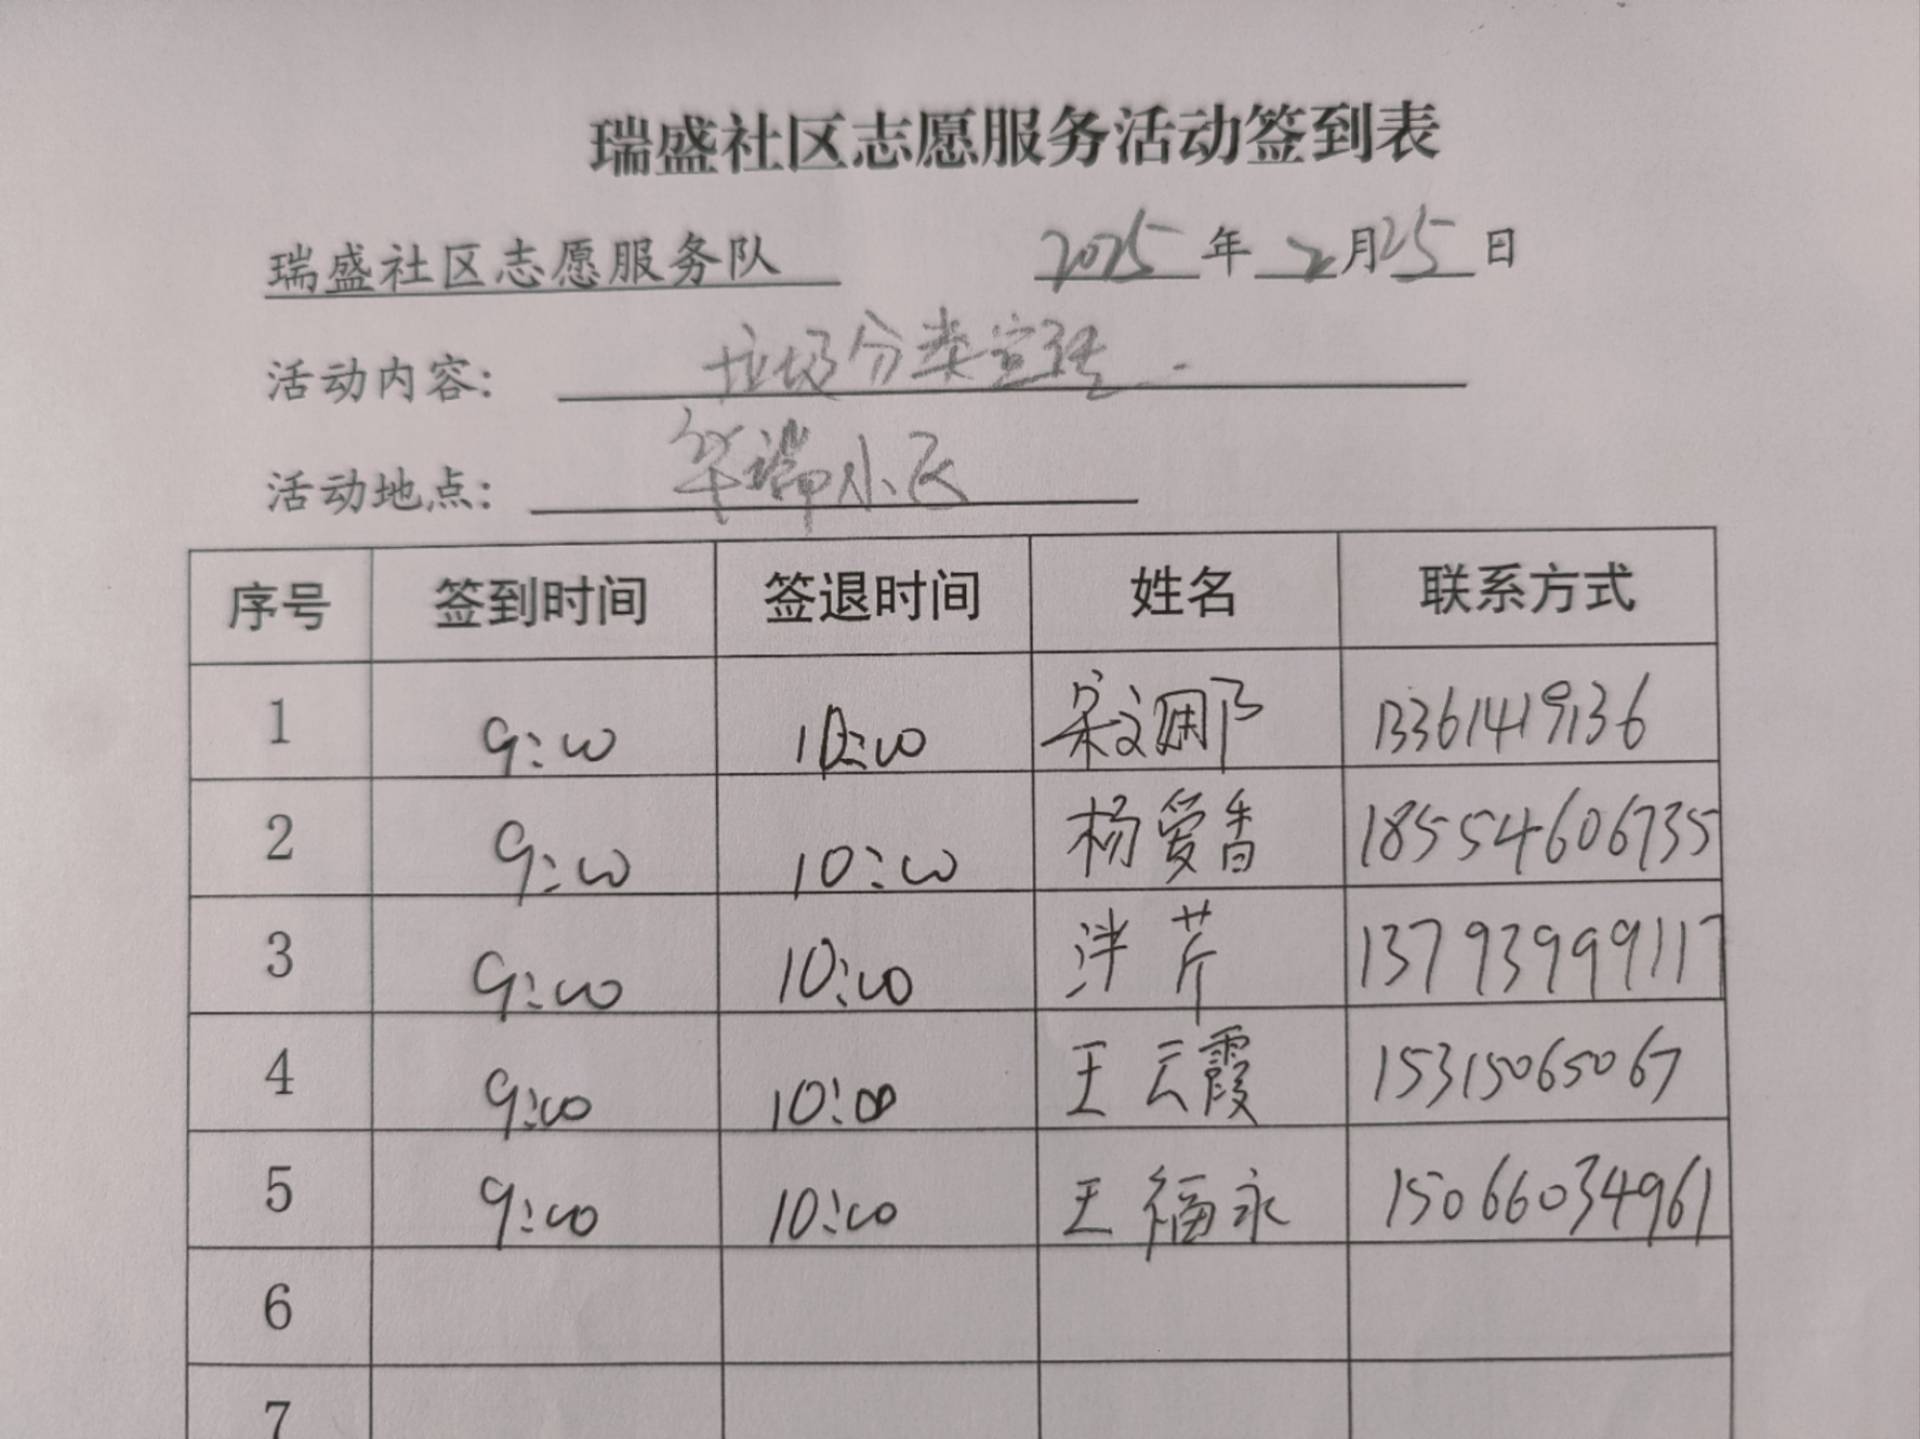 瑞盛社区志愿服务活动签到表
瑞盛社区志愿服务队 2025年2月25日
活动内容: 垃圾分类宣传.
活动地点: 华瑞小区
序号 签到时间 签退时间 姓名 联系方式
1 9:00 10:00 13361419136
2 9:00 10:00 杨爱香 18554606735
3 9:00 10:00 芹 13793999117
4 9:00 10:00 王云霞 15315065067
5 9:00 10:00 王福永 15066034961
6
7